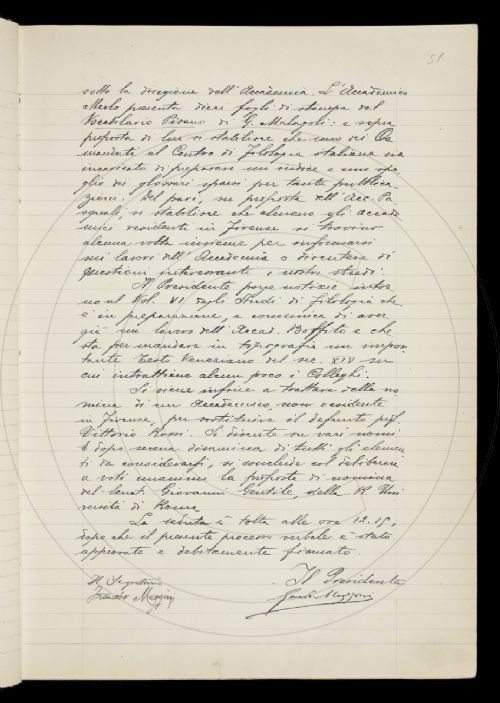 51
sotto la direzione dell'Accademia. L'Accademico
Merlo presenta dieci fogli di stampa del
Vocabolario Pisano di G. Malagoli: e sopra
proposta di lui si stabilisce che uno dei Co
mandati al Centro di Filologia italiana sia
incaricato di preparare un indice e uno spo
glio dei glossari sparsi per tante pubblica
zioni. Del pari, su proposta dell'Acc. Pa
squali, si stabilisce che almeno gli accade
mici residenti in Firenze si trovino
alcuna volta insieme per informarsi
sui lavori dell'Accademia o discutere di
questioni interessanti i nostri studi.
Il Presidente porge notizie intor
no al Vol. VI degli Studi di Filologia che
è in preparazione, e comunica di aver
già un lavoro dell'Accad. Boffito e che
sta per mandare in tipografia un impor
tante testo Veneziano del sec. XIV su
cui intrattiene alcun poco i Colleghi.
Si viene infine a trattare della no
mina di un Accademico, non residente
in Firenze, per sostituire il defunto prof.
Vittorio Rossi. Si discute su vari nomi
e dopo serena disamina di tutti gli elemen
ti da considerarsi, si conclude col deliberare
a voti unanimi la proposta di nomina
del Senat. Giovanni Gentile, della R. Uni
versità di Roma.
La seduta è tolta alle ore 12.15,
dopo che il presente processo verbale è stato
approvato e debitamente firmato.
Il Segretario
Il Presidente
Francesco Maggini
Guido Mazzoni